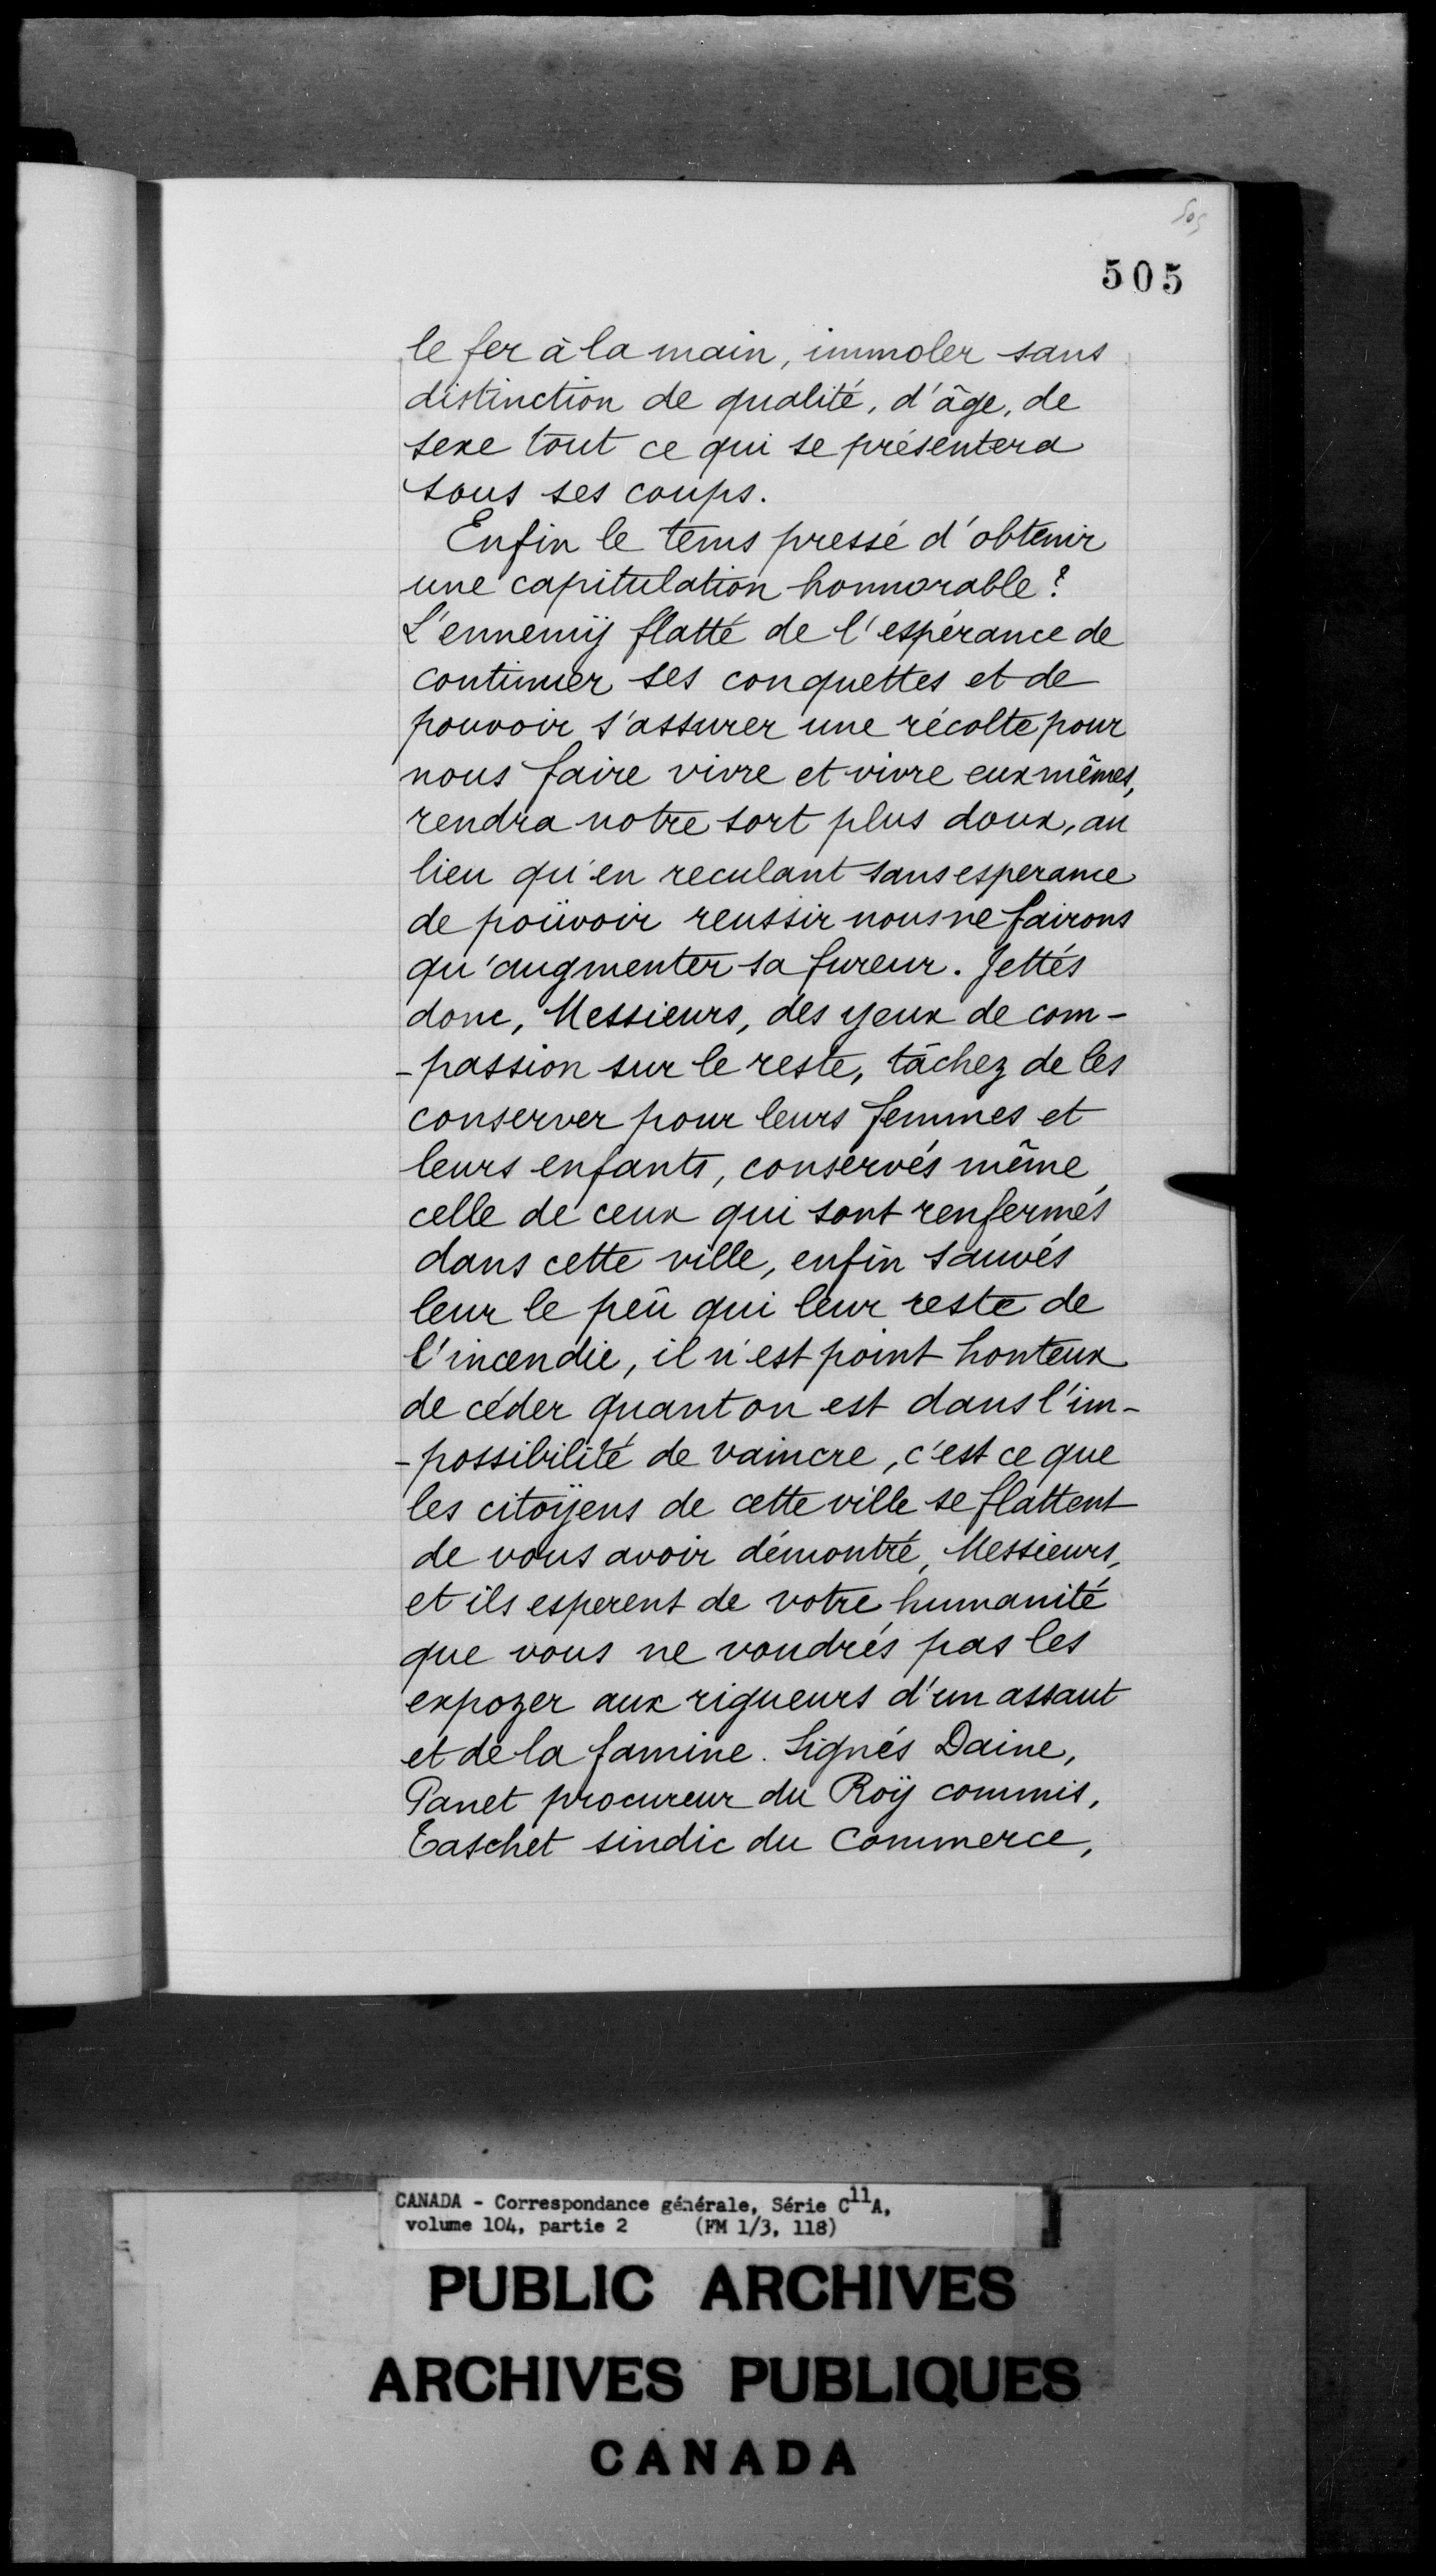 505
505
le fer à la main, immoler sans
distinction de qualité, d'âge, de
sexe tout ce qui se présentera
sous ses coups.
Enfin le tems pressé d'obtenir
une capitulation honnorable?
L'ennemÿ flatté de l'espérance de
continuer ses conquettes et de
pouvoir s'assurer une récolte pour
nous faire vivre et vivre eux mêmes,
rendra notre sort plus doux, au
lieu qu'en reculant sans esperance
de poüvoir reussir nous ne fairons
qu'augmenter sa fureur. Jettés
donc, Messieurs, des yeux de com-
-passion sur le reste, tâchez de les
conserver pour leurs femmes et
leurs enfants, conservés même
celle de ceux qui sont renfermés
dans cette ville, enfin sauvés
leur le peû qui leur reste de
l'incendie, il n'est point honteux
de céder quant on est dans l'im-
-possibilité de vaincre, c'est ce que
les citoÿens de cette ville se flattent
de vous avoir démontré, Messieurs,
et ils esperent de votre humanité
que vous ne voudrés pas les
expozer aux rigueurs d'un assaut
et de la famine. Signés Daine,
Panet procureur du Roÿ commis,
Taschet sindic du Commerce,
CANADA - Correspondance générale, Série C11A,
volume 104, partie 2 (FM 1/3, 118)
PUBLIC ARCHIVES
ARCHIVES PUBLIQUES
CANADA